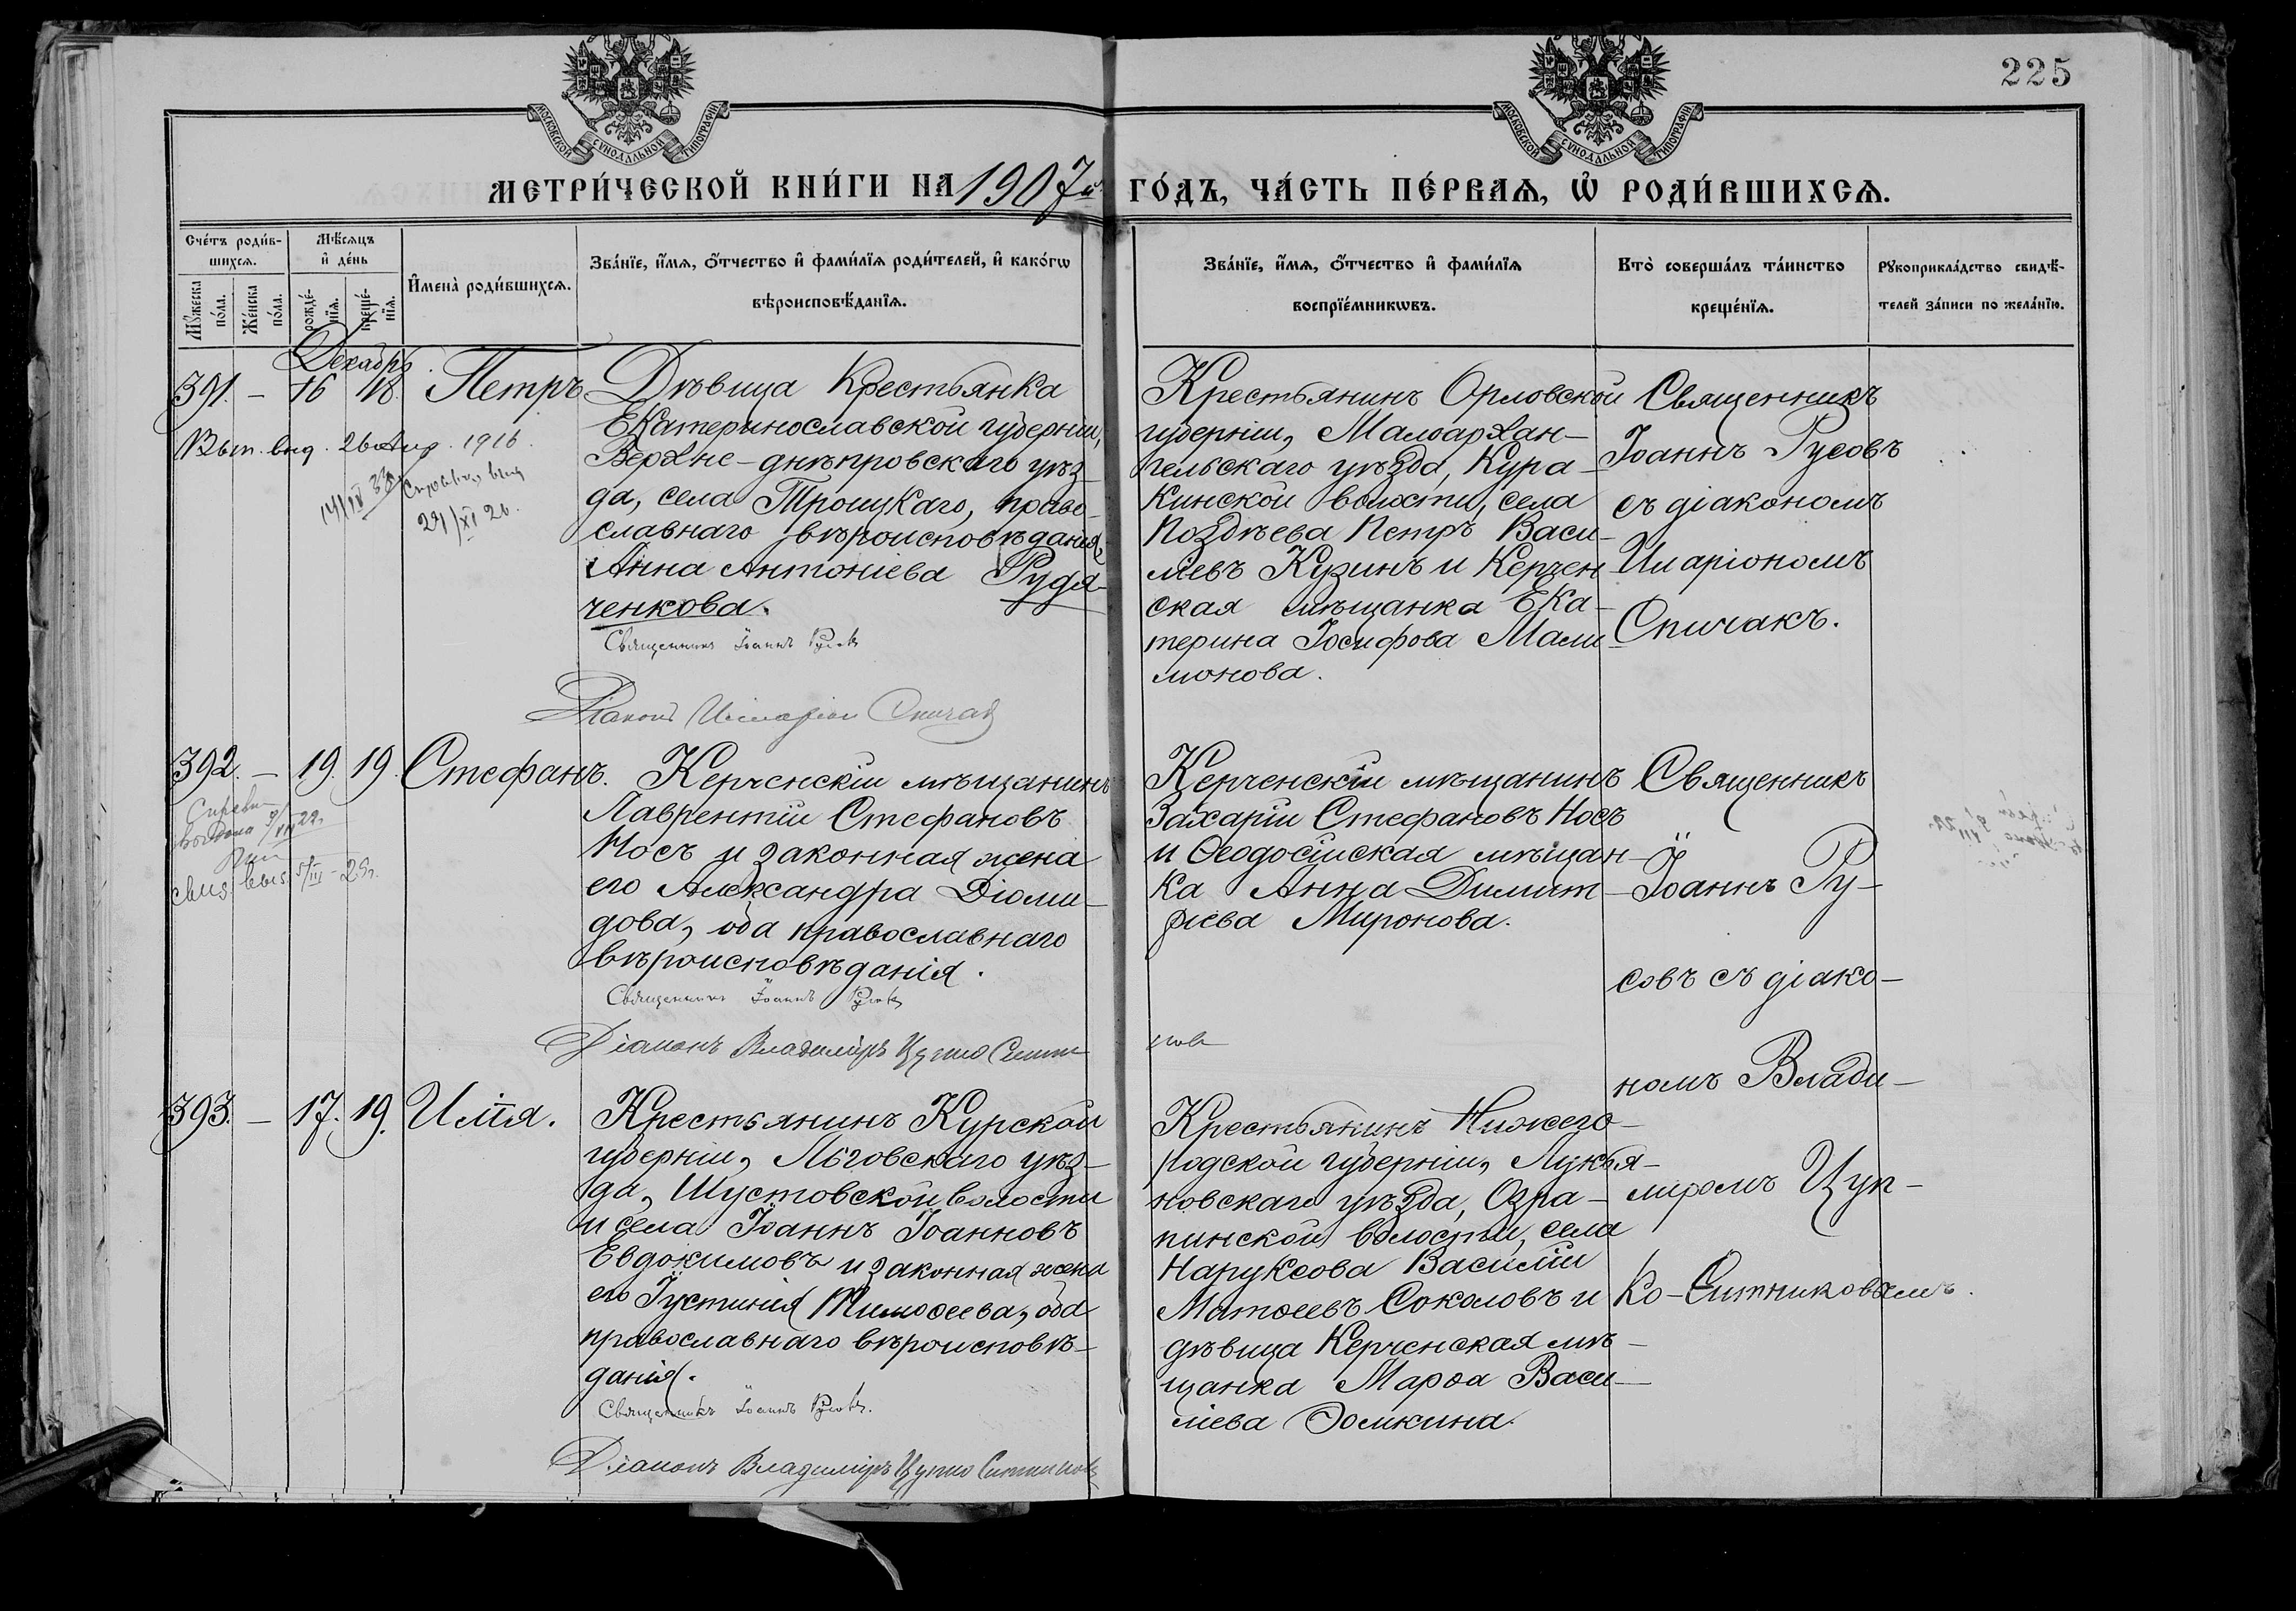 225
МОСКОВСКОЙ СУНОДАЛЬНОЙ ТИПОГРАФІИ
МОСКОВСКОЙ СУНОДАЛЬНОЙ ТИПОГРАФІИ
МЕТРИ́ЧЕСКОЙ КНИ́ГИ НА 1907й ГО́ДЪ, ЧА́СТЬ ПЕ́РВАѦ, Ѡ РОДИ́ВШИХСѦ.
Сче́тъ роди́в-
шихсѧ.
Мѣ́сѧцъ
и҆ де́нь
Мꙋ́жеска
по́ла.
Же́нска
по́ла.
рожде́-
нїѧ.
креще́-
нїѧ.
И҆мена̀ роди́вшихсѧ.
Зва́нїе, и҆́мѧ, ѻ҆́тчество и҆ фами́лїѧ роди́телей, и҆ како́гѡ
вѣроисповѣ́данїѧ.
Зва́нїе, и҆́мѧ, ѻ҆́тчество и҆ фами́лїѧ
воспрїе́мникѡвъ.
Кто̀ соверша́лъ та́инство
креще́нїѧ.
Рꙋкоприкла́дство свидѣ́-
телей за́писи по жела́нїю.
Декабрь
391. – 16 18. Петръ
Дѣвица Крестьянка
Екатеринославской губерніи,
Верхне-днѣпровскаго уѣз-
да, села Троицкаго, право-
славнаго вѣроисповѣданія,
Анна Антоніева Рудя-
ченкова.
Священникъ Іоаннъ Русовъ
Діаконъ Иларіон Спичакъ
Вып. выд. 26 Апр. 1916.
29/XI 26.
Крестьянинъ Орловской
губерніи, Малоархан-
гельскаго уѣзда, Кура-
кинской волости, села
Поздѣева Петръ Васи-
ліевъ Кузинъ и Керчен-
ская мѣщанка Ека-
терина Іосифова Мали-
монова.
Священникъ
Іоаннъ Русовъ
съ діакономъ
Иларіономъ
Спичакъ.
392. – 19. 19. Стефанъ.
Керченскій мѣщанинъ
Лаврентій Стефановъ
Носъ и законная жена
его Александра Діоми-
дова, оба православнаго
вѣроисповѣданія.
Священникъ Іоаннъ Русовъ
Діаконъ Владиміръ Цупко Ситни
ковъ
Керченскій мѣщанинъ
Захарій Стефановъ Носъ
и Ѳеодосійская мѣщан-
ка Анна Димит-
ріева Миронова.
Священникъ
Іоаннъ Ру-
совъ съ діако-
номъ Влади-
міромъ Цуп-
ко-Ситниковымъ.
393. – 17. 19. Илія.
Крестьянинъ Курской
губерніи, Льговскаго уѣз-
да, Шустовской волости
и села Іоаннъ Іоанновъ
Евдокимовъ и законная жена
его Іустинія Тимоѳеева, оба
православнаго вѣроисповѣ-
данія.
Священникъ Іоаннъ Русовъ.
Діаконъ Владиміръ Цупко Ситниковъ
Крестьянинъ Нижего-
родской губерніи, Лукоя-
новскаго уѣзда, Азра-
пинской волости, села
Наруксова Василій
Матѳеевъ Соколовъ и
дѣвица Керченская мѣ-
щанка Марѳа Васи-
ліева Ѳомкина.